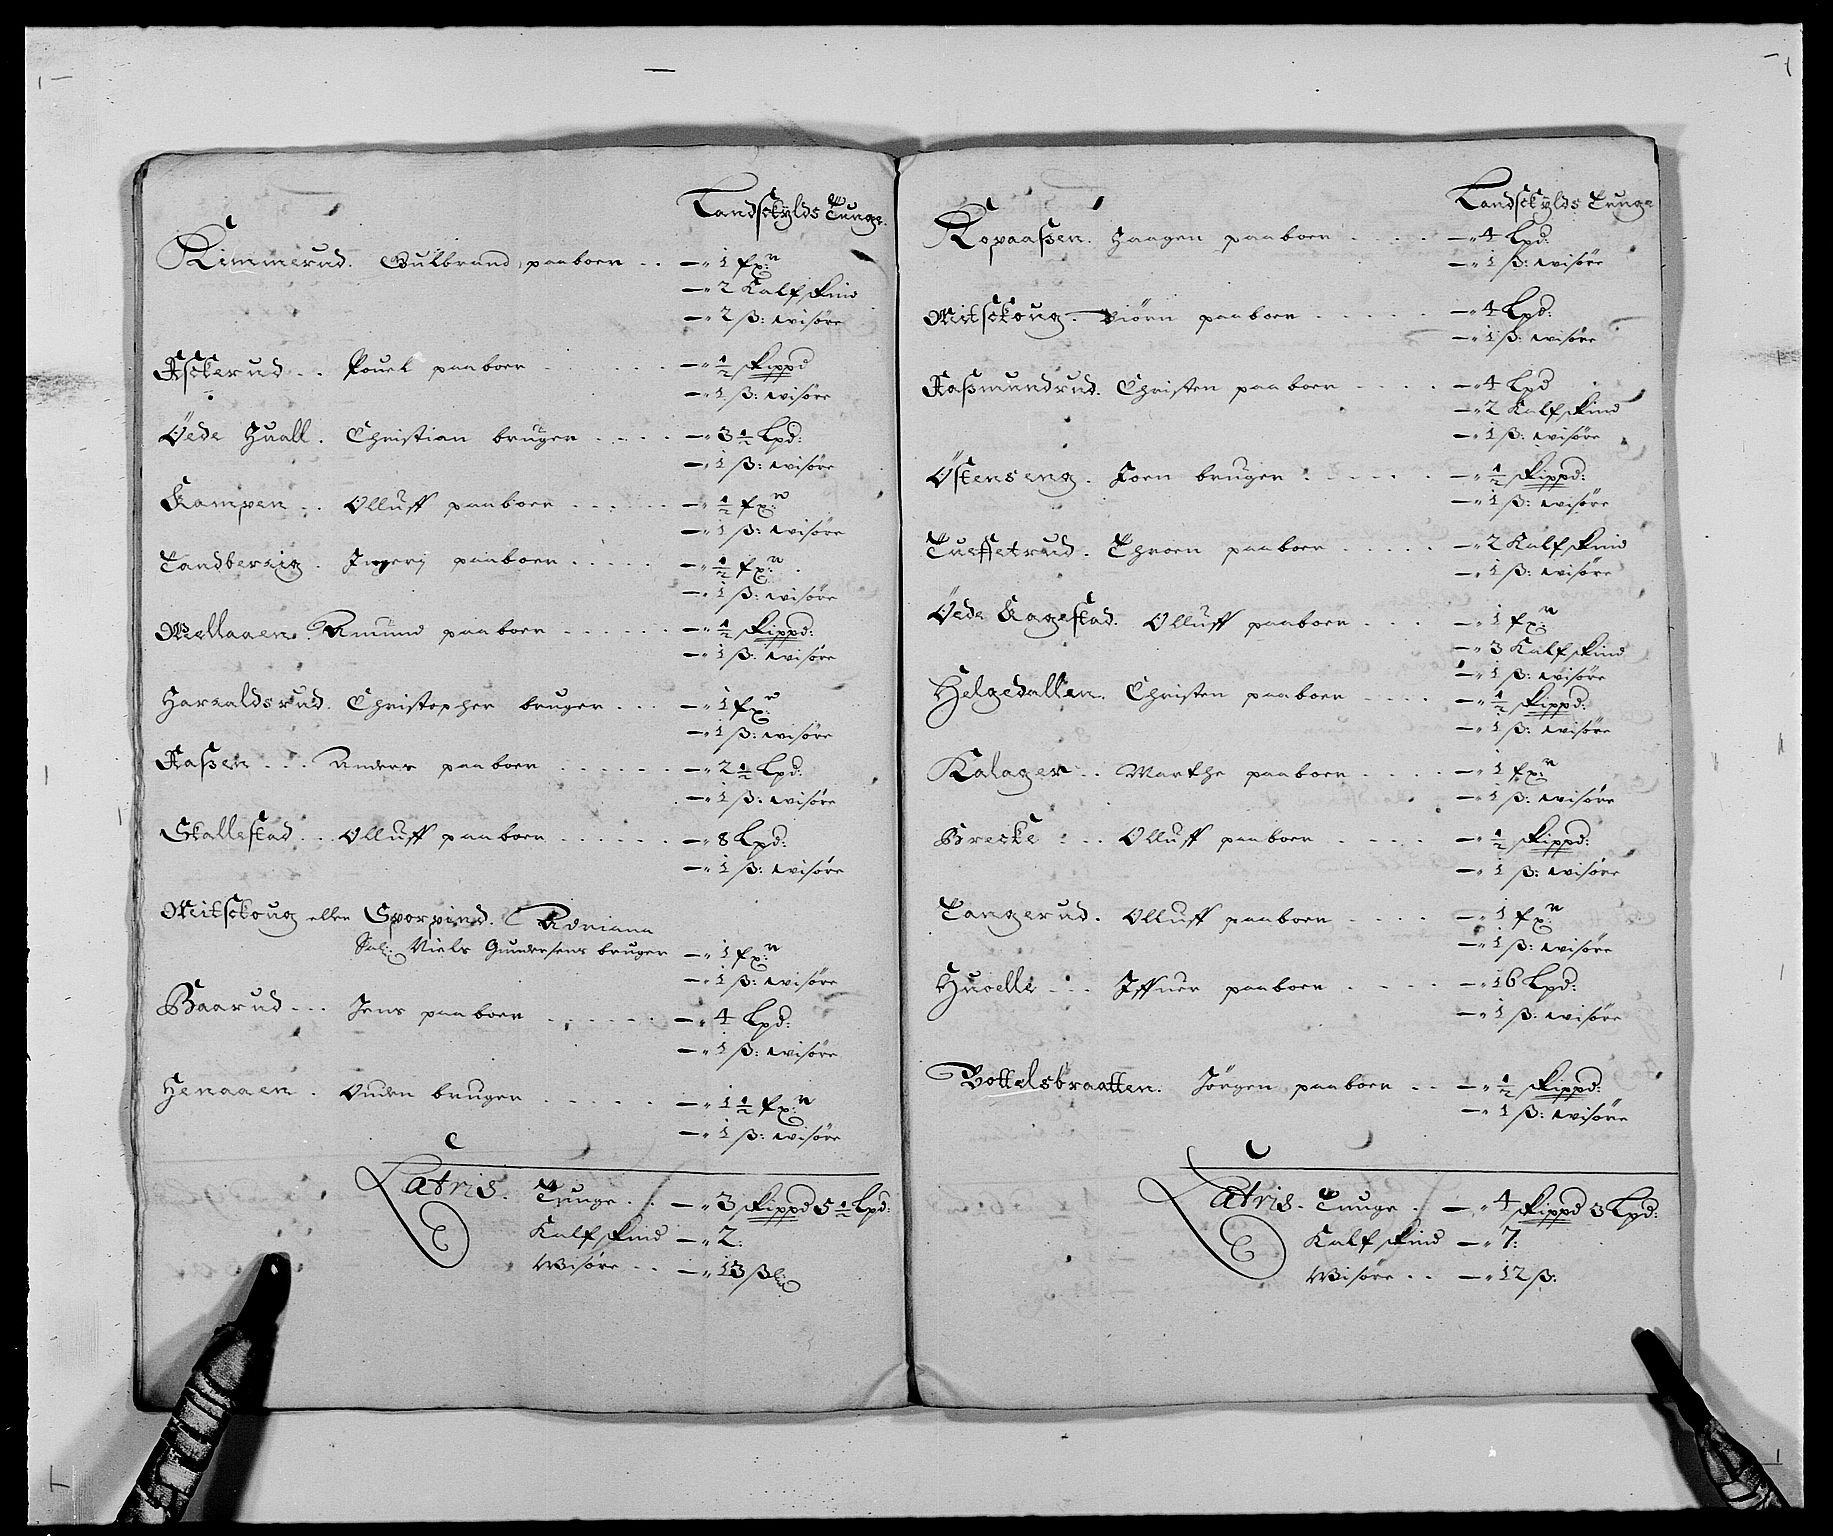 Landschylds Tunge.
Kimmerud. Gulbrand paaboer . . — 1 fx:r
— 2 Kalfskind
— 2 ß: wisöre
Aschkerud . . Pouel paaboer . . . . . — ½ skippd
— 1 ß: wisöre
Öede Huall. Christian bruger . . . . — 3½ Lpd:
— 1 ß: wisöre
Kampen . . Olluff paaboer . . . . . — ½ fx:r
— 1 ß: wisöre
Tandberrig. Ingerj paaboer . . . . . — ½ fx:r
— 1 ß: wisöre
Mellaaen. Amund paaboer . . . . . — ½ skippd:
— 1 ß: wisöre
Harraldsrud. Christopher bruger . . . — 1 fx:r
— 1 ß: wisöre
Aaßen . . . Anders paaboer . . . . . — 2½ Lpd:
— 1 ß: wisöre
Skallestad . . Olluff paaboer . . . . . . — 8 Lpd:
— 1 ß: wisöre
Mitschoug eller Sporpind. Adriana
Sal: Niels Gundersens bruger — 1 fx:r
— 1 ß: wisöre
Baarud . . . Jens paaboer . . . . . . — 4 Lpd:
— 1 ß: wisöre
Henaaen . Ouden bruger . . . . . — 1½ fx:r
— 1 ß: wisöre
Latris. Tunge . . — 3 skippd 5½ Lpd:
Kalfskind — 2:
Wisöre . . — 13 ß
Landschylds Tunge
Kopaaßen. Haagen paaboer . . . . — 4 Lpd:
— 1 ß: wisöre
Mitschoug. Biörn paaboer . . . . . — 4 Lpd:
— 1 ß: wisöre
Aaßmundrud. Christen paaboer . . . . — 4 Lpd
— 2 Kalfskind
— 1 ß: wisöre
Östenseng. Koen bruger . . . . . — ½ skippd:
— 1 ß: wisöre
Tueffetrud. Throen paaboer . . . . . — 2 Kalfskind
— 1 ß: wisöre
Öede Kagestad. Olluff paaboer . . . — 1 fx:r
— 3 Kalfskind
— 1 ß: wisöre
Helgedallen. Christen paaboer . . . . — ½ skippd:
— 1 ß: wisöre
Kalager . . Marthe paaboer . . . . — 1 fx:r
— 1 ß: wisöre
Brecke . . . Olluff paaboer . . . . — ½ skippd:
— 1 ß: wisöre
Tangerud. Olluff paaboer . . . . — 1 fx:r
— 1 ß: wisöre
Huoelle . . . Iffuer paaboer . . . . — 16 Lpd:
— 1 ß: wisöre
Bottelsbraatten. Jörgen paaboer . . — ½ skippd:
— 1 ß: wisöre
Latris. Tunge . — 4 skippd 3 Lpd:
Kalfskind — 7:
Wisöre . . — 12 ß: